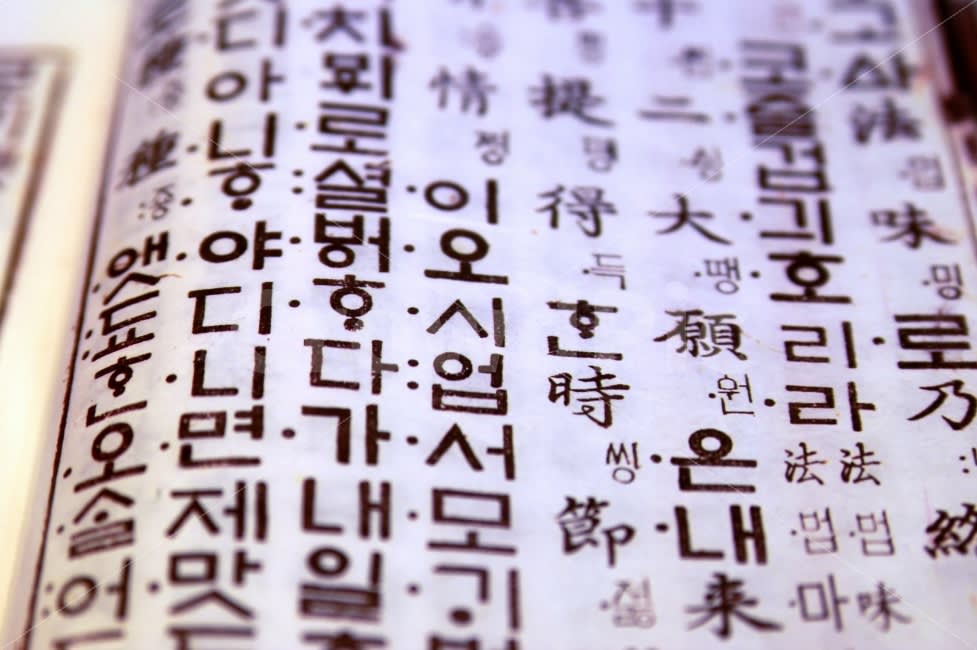 사法법味밍로乃
긔호리라法法법법마味
二싱大땡願원은내来
提뎽得득ᄒᆞᆫ時씽節졇
情졍이오시업서모기
로셜법ᄒᆞ다가내일
디아니ᄒᆞ야디니면제맛
種죵앳됴ᄒᆞᆫ오ᄉᆞᆯ어